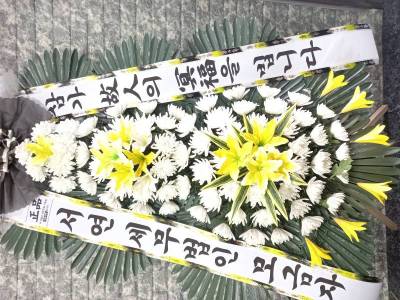 삼가 故人의 冥福을 빕니다
正品
서연 세무법인 모금자